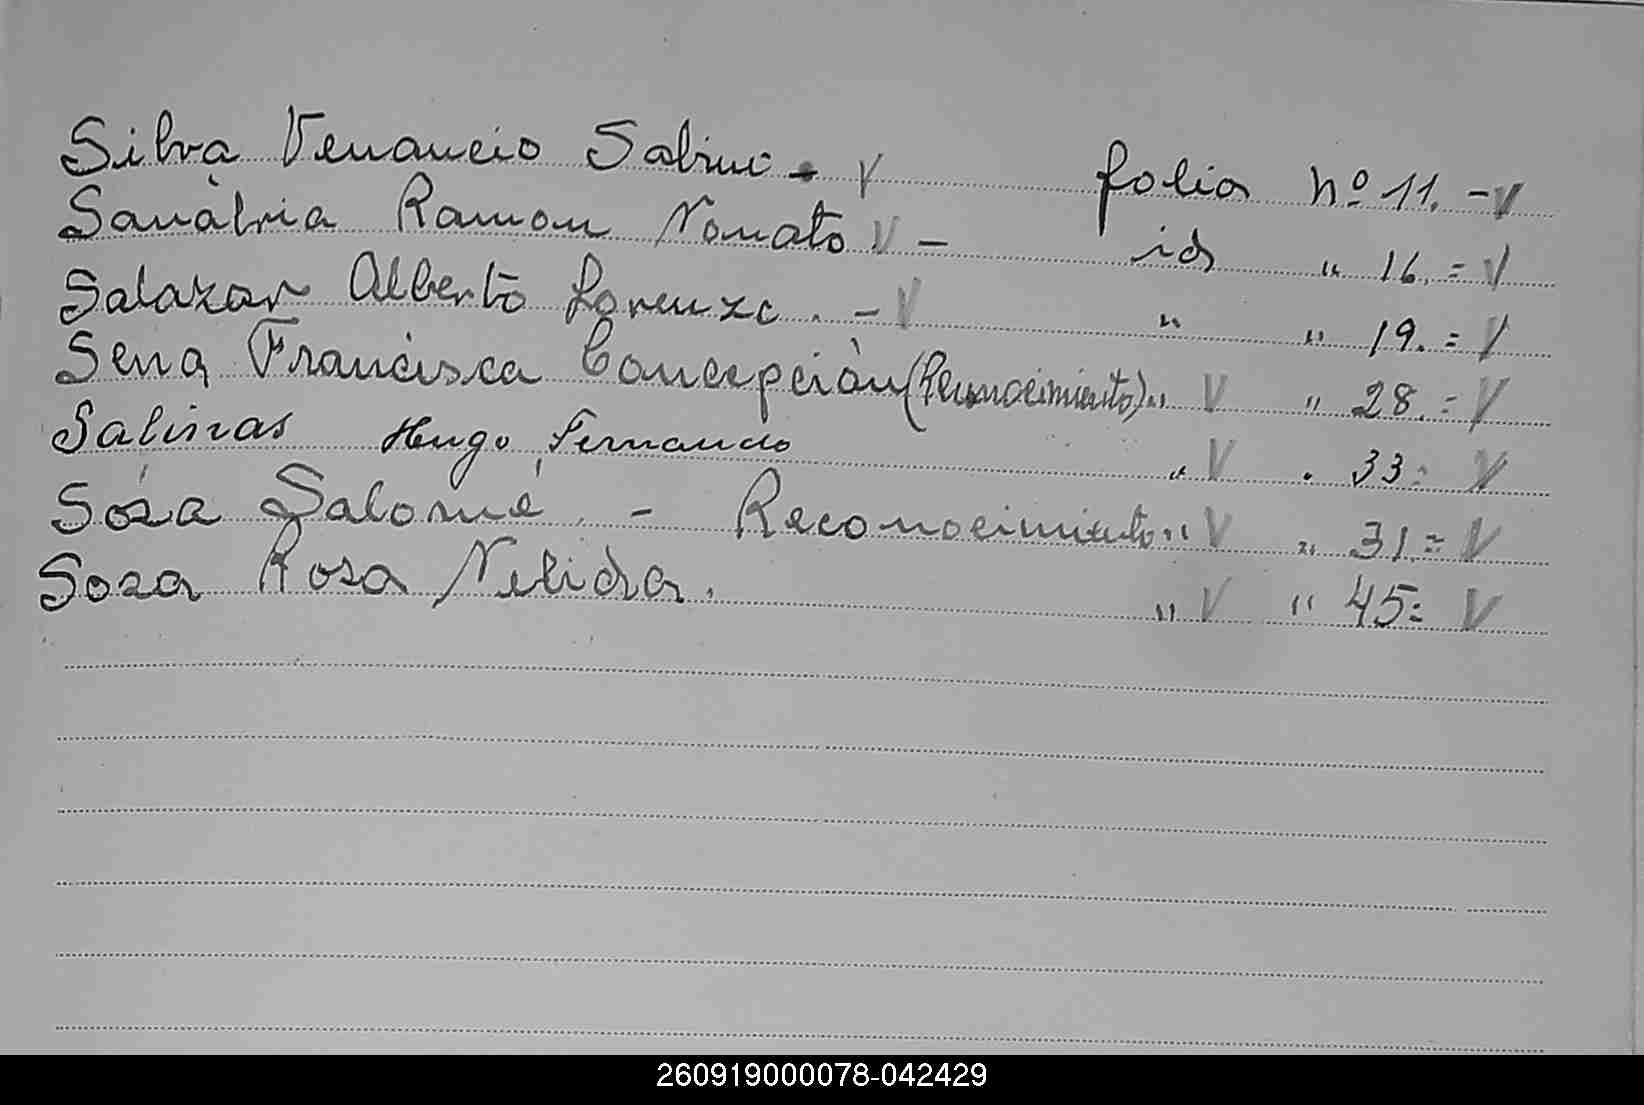 Silva Venancio Sabino - V folio Nº 11. - V
Sanabria Ramon Nonato V - id " 16. = V
Salazar Alberto Lorenzo . - V " " 19. = V
Sena Francisca Concepción (Reconocimiento) " V " 28. = V
Salinas Hugo Fernando " V . 33 = V
Sosa Salomé . - Reconocimiento " V " 31 = V
Sosa Rosa Nelida . " V " 45 = V
260919000078-042429